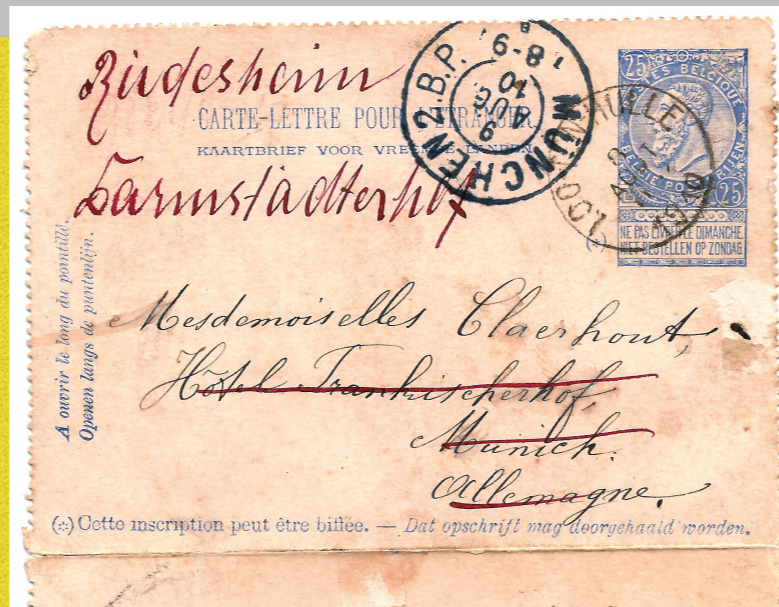 Rüdesheim
CARTE-LETTRE POUR L'ÉTRANGER.
KAARTBRIEF VOOR VREEMDE LANDEN.
Darmstädterhof
MÜNCHEN 2.B.P.
8-9
10
AUG
9
25 25
TES BELGIQUE
BELGIE POSTERIJEN
25
NE PAS LIVRER LE DIMANCHE
NIET BESTELLEN OP ZONDAG
(*)
LOO
HULLE
A ouvrir le long du pointillé.
Openen langs de puntenlijn.
Mesdemoiselles Claerhout,
Hôtel Frankischerhof,
Munich.
Allemagne.
(*) Cette inscription peut être biffée. — Dat opschrift mag doorgehaald worden.